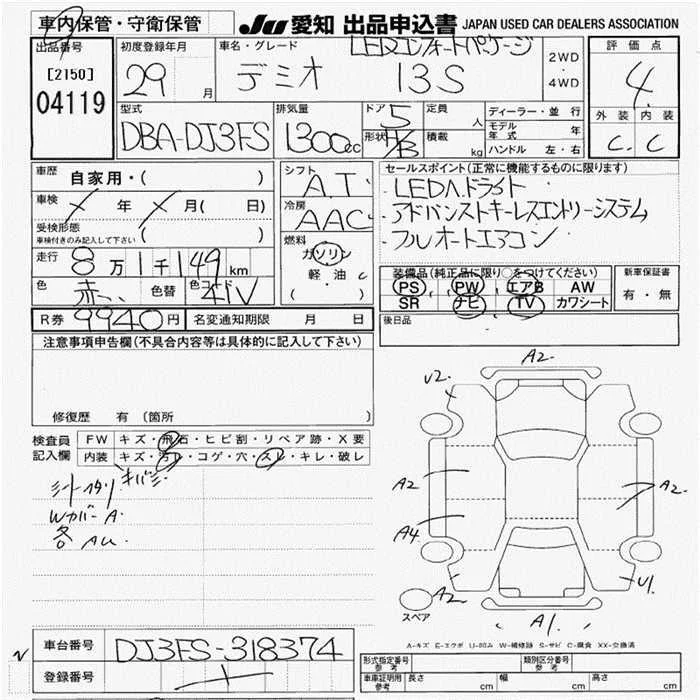 車内保管・守衛保管
JU 愛知 出品申込書 JAPAN USED CAR DEALERS ASSOCIATION
出品番号
[2150]
04119
初度登録年月
29 月
車名・グレード
LEDコンフォートパッケージ
デミオ 13S
2WD
・
4WD
評価点
4
外装 内装
C C
型式
DBA-DJ3FS
排気量
1300cc
ドア 5
形状 H/B
定員 人
積載 kg
ディーラー・並行
モデル年式 年
ハンドル 左・右
車歴
自家用・( )
車検 年 月( 日)
受検形態
車検付きのみ記入して下さい ( )
走行 8万1千149km
色 赤 色替 色コード 41V
シフト
A.T.
冷房
AAC
燃料
ガソリン
軽油
( )
セールスポイント(正常に機能するものに限ります)
・LEDヘッドライト
・アドバンストキーレスエントリーシステム
・フルオートエアコン
装備品(純正品に限り○をつけてください)
PS PW エアB AW
SR ナビ TV カワシート
新車保証書
有・無
後日品
R券 9940円 名変通知期限 月 日
注意事項申告欄(不具合内容等は具体的に記入して下さい)
修復歴 有 (箇所
検査員
記入欄
FW キズ・飛石・ヒビ割・リペア跡・X要
内装 キズ・汚レ・コゲ・穴・スレ・キレ・破レ
Wカバー A
各 AU
A2
V2
A2
A4
A2
A2
U1
A1
スペア
A-キズ E-エクボ U-凹み W-補修跡 S-サビ C-腐食 XX-交換済
車台番号 DJ3FS-318374
登録番号
形式指定番号
参考
類別区分番号
参考
車庫証明用
参考
長さ cm 幅 cm 高さ cm